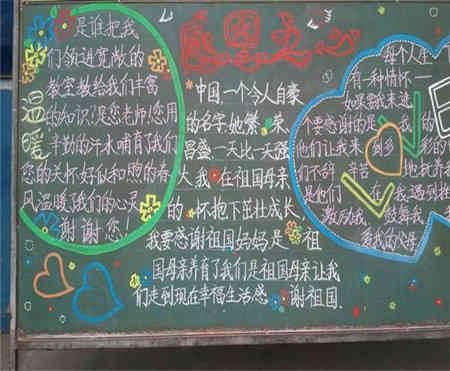 感恩之心
是谁把我
们领进宽敞的
教室教给我们丰富
的知识!是您老师!您用
辛勤的汗水哺育了我们
您的关怀好似和煦的春
风温暖了我们的心灵
谢谢您!
温暖
中国一个令人自豪
的名字她繁荣
昌盛一天比一天强
大我在祖国母亲
的怀抱下茁壮成长,
我要感谢祖国妈妈是祖
国母亲养育了我们是祖国母亲让我
们走到现在幸福生活感谢祖国
每个人生
有一种情怀一
如果要
要感谢的是我的
他们让我来到多彩的
们不辞辛苦地抚养我
是他们在我遇到挫
教厉我鼓舞我
爱我的父母